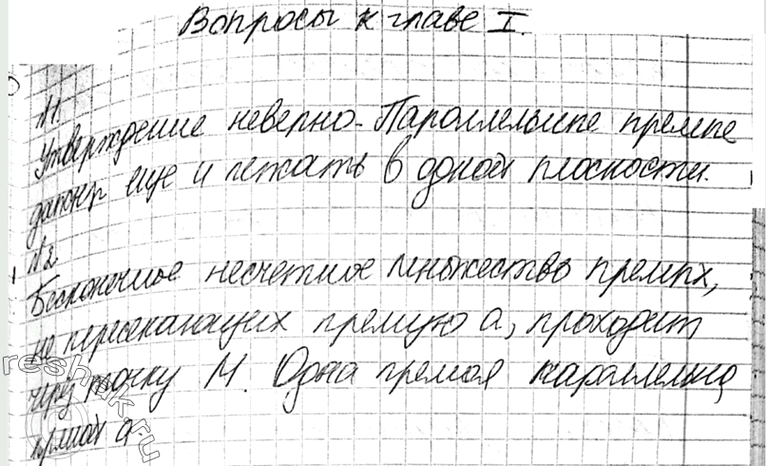 Вопросы к главе I.
№1.
Утверждение неверно. Параллельные прямые
должны еще и лежать в одной плоскости.
№2
Бесконечное несчетное множество прямых,
не пересекающих прямую а, проходит
через точку М. Одна прямая параллельна
прямой а.
reshak.ru